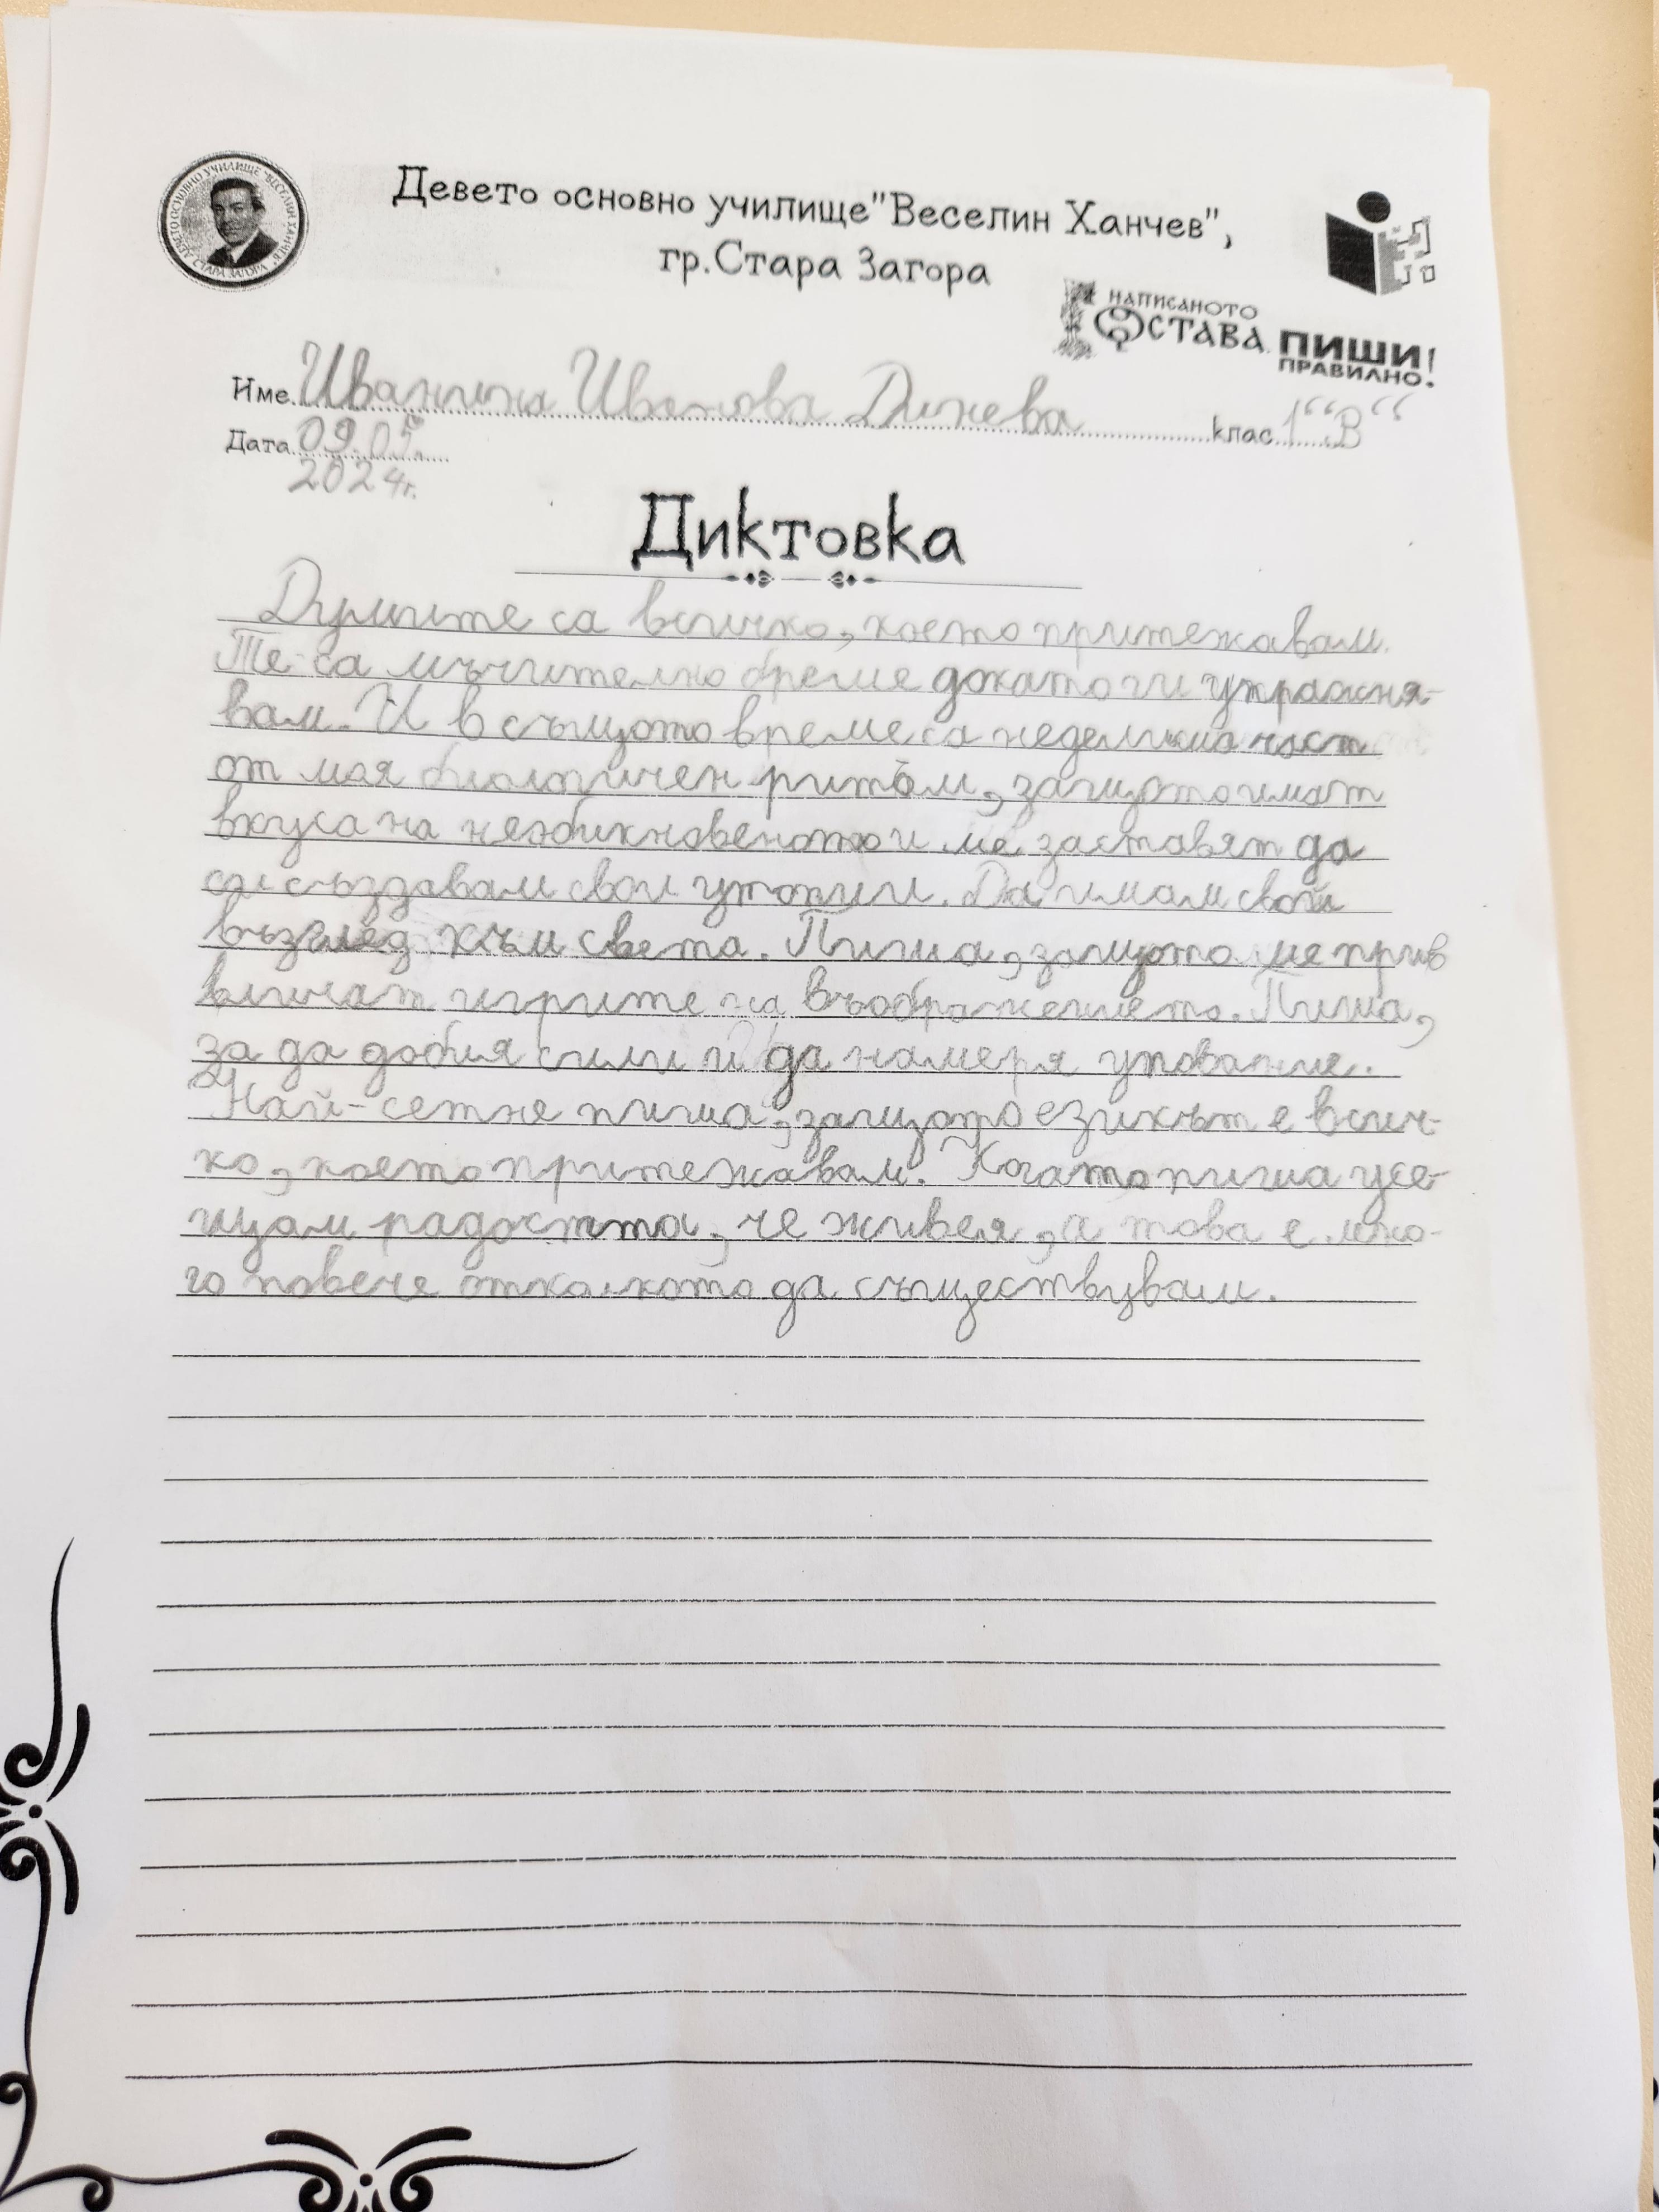 Девето основно училище"Веселин Ханчев",
гр.Стара Загора
НАПИСАНОТО
ОСТАВА ПИШИ!
ПРАВИЛНО.
Име Иванина Иванова Динева клас 1“В“
Дата 09.05.
2024г.
Диктовка
Думите са всичко, което притежавам.
Те са мъчително бреме докато ги упражня-
вам. И в същото време са неделима част
от моя биологичен ритъм, защото имат
вкуса на необикновеното и ме заставят да
си създавам свои утопии. Да имам свой
възглед към света. Пиша, защото ме прив
вличат игрите на въображението. Пиша,
за да добия сили и да намеря упование.
Най-сетне пиша, защото езикът е всич-
ко, което притежавам. Когато пиша усе-
щам радостта, че живея, а това е мно-
го повече отколкото да съществувам.